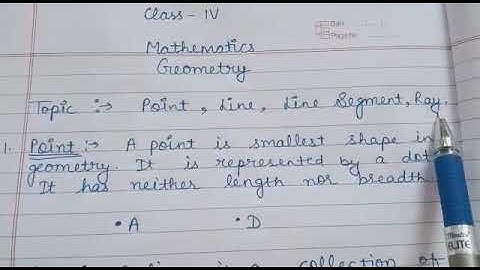 Class - IV
Mathematics
Geometry
Topic :→ Point, Line, Line Segment, Ray.
1. Point :→ A point is smallest shape in
geometry. It is represented by a dot
It has neither length nor breadth
• A • D
is a collection of
ELITE